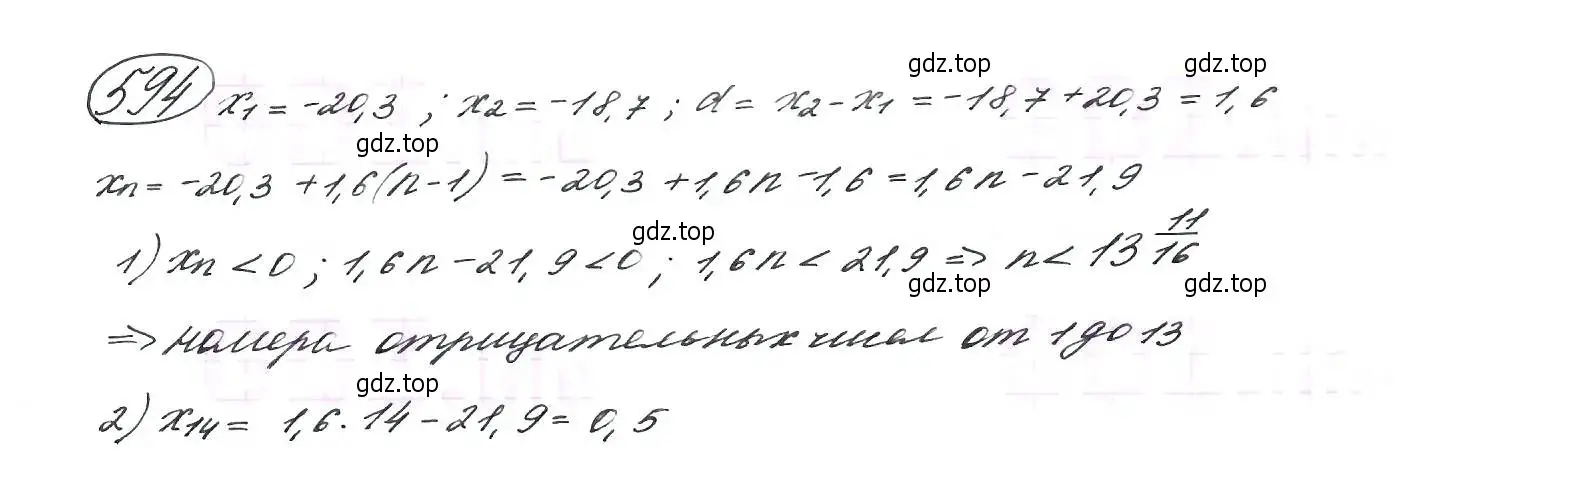 594 x₁ = -20,3 ; x₂ = -18,7 ; d = x₂ - x₁ = -18,7 + 20,3 = 1,6
xₙ = -20,3 + 1,6(n-1) = -20,3 + 1,6n - 1,6 = 1,6n - 21,9
1) xₙ < 0 ; 1,6n - 21,9 < 0 ; 1,6n < 21,9 => n < 13 11/16
=> номера отрицательных чисел от 1 до 13
2) x₁₄ = 1,6 · 14 - 21,9 = 0,5
gdz.top
gdz.top
gdz.top
gdz.top
gdz.top
gdz.top
gdz.top